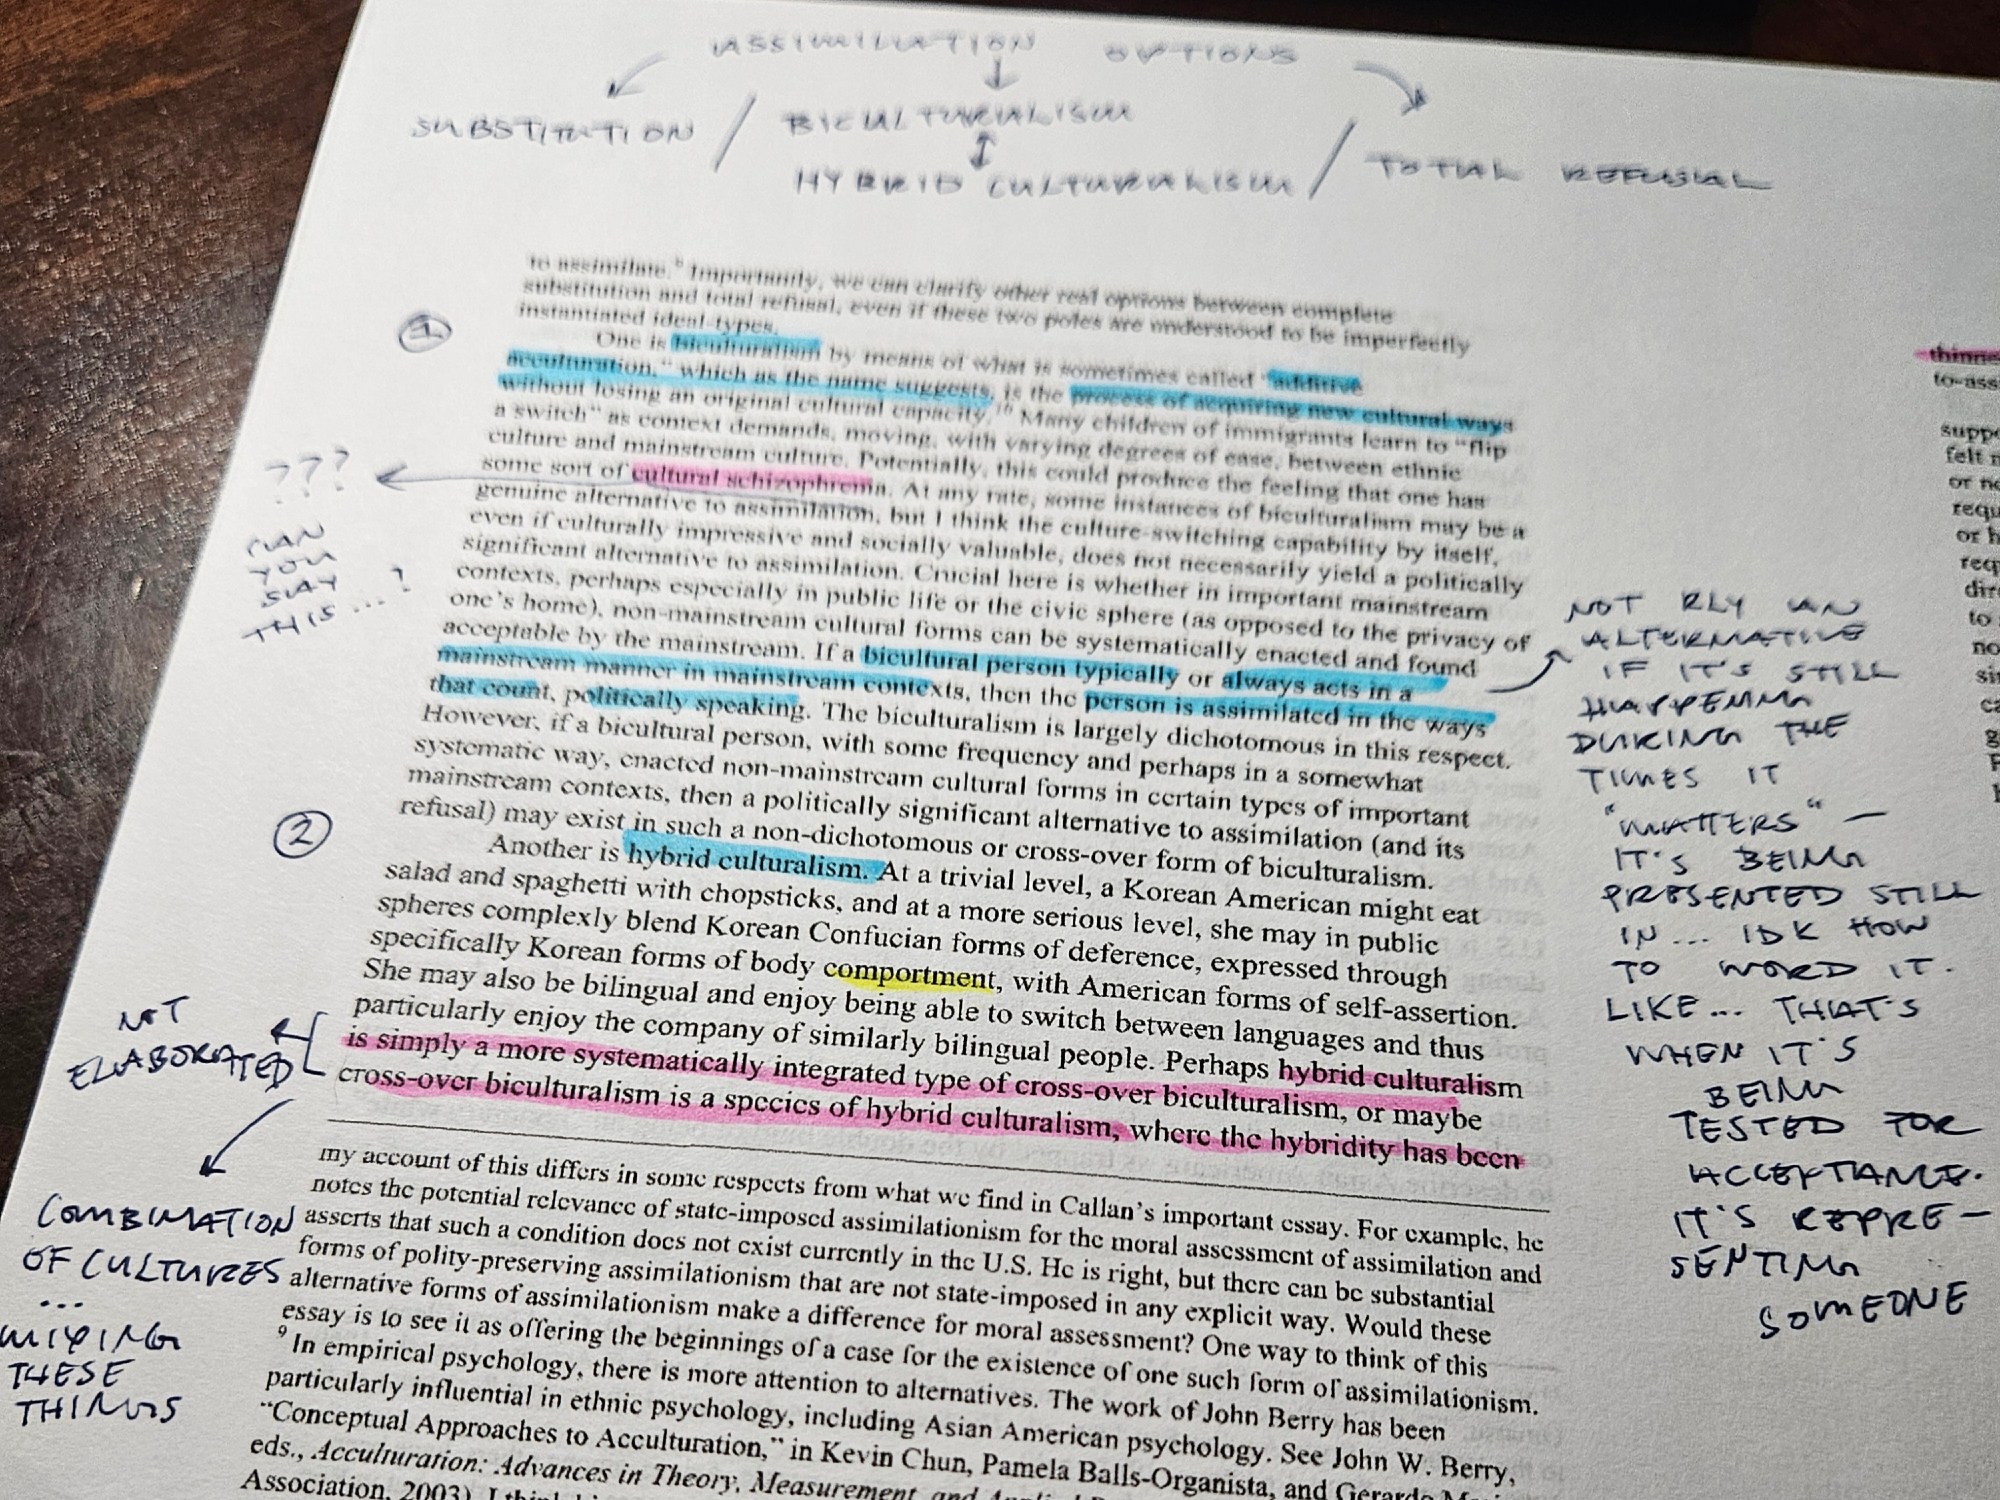 ASSIMILATION OPTIONS
SUBSTITUTION / BICULTURALISM / TOTAL REFUSAL
HYBRID CULTURALISM
to assimilate.⁸ Importantly, we can clarify other real options between complete
substitution and total refusal, even if these two poles are understood to be imperfectly
instantiated ideal-types.
1
One is biculturalism by means of what is sometimes called "additive
acculturation," which as the name suggests, is the process of acquiring new cultural ways
without losing an original cultural capacity. Many children of immigrants learn to "flip
a switch" as context demands, moving, with varying degrees of ease, between ethnic
culture and mainstream culture. Potentially, this could produce the feeling that one has
some sort of cultural schizophrenia. At any rate, some instances of biculturalism may be a
genuine alternative to assimilation, but I think the culture-switching capability by itself,
even if culturally impressive and socially valuable, does not necessarily yield a politically
significant alternative to assimilation. Crucial here is whether in important mainstream
contexts, perhaps especially in public life or the civic sphere (as opposed to the privacy of
one's home), non-mainstream cultural forms can be systematically enacted and found
acceptable by the mainstream. If a bicultural person typically or always acts in a
mainstream manner in mainstream contexts, then the person is assimilated in the ways
that count, politically speaking. The biculturalism is largely dichotomous in this respect.
However, if a bicultural person, with some frequency and perhaps in a somewhat
systematic way, enacted non-mainstream cultural forms in certain types of important
mainstream contexts, then a politically significant alternative to assimilation (and its
refusal) may exist in such a non-dichotomous or cross-over form of biculturalism.
2
Another is hybrid culturalism. At a trivial level, a Korean American might eat
salad and spaghetti with chopsticks, and at a more serious level, she may in public
spheres complexly blend Korean Confucian forms of deference, expressed through
specifically Korean forms of body comportment, with American forms of self-assertion.
She may also be bilingual and enjoy being able to switch between languages and thus
particularly enjoy the company of similarly bilingual people. Perhaps hybrid culturalism
is simply a more systematically integrated type of cross-over biculturalism, or maybe
cross-over biculturalism is a species of hybrid culturalism, where the hybridity has been
my account of this differs in some respects from what we find in Callan's important essay. For example, he
notes the potential relevance of state-imposed assimilationism for the moral assessment of assimilation and
asserts that such a condition does not exist currently in the U.S. He is right, but there can be substantial
forms of polity-preserving assimilationism that are not state-imposed in any explicit way. Would these
alternative forms of assimilationism make a difference for moral assessment? One way to think of this
essay is to see it as offering the beginnings of a case for the existence of one such form of assimilationism.
⁹ In empirical psychology, there is more attention to alternatives. The work of John Berry has been
particularly influential in ethnic psychology, including Asian American psychology. See John W. Berry,
"Conceptual Approaches to Acculturation," in Kevin Chun, Pamela Balls-Organista, and Gerardo
eds., Acculturation: Advances in Theory, Measurement, and
Association, 2003). I
???
CAN
YOU
SAY
THIS...?
NOT
ELABORATED
COMBINATION
OF CULTURES
...
MIXING
THESE
THINGS
NOT RLY AN
ALTERNATIVE
IF IT'S STILL
HAPPENING
DURING THE
TIMES IT
"MATTERS" —
IT'S BEING
PRESENTED STILL
IN... IDK HOW
TO WORD IT.
LIKE... THAT'S
WHEN IT'S
BEING
TESTED FOR
ACCEPTANCE.
IT'S REPRE-
SENTING
SOMEONE
thinne
to-ass
supp
felt
or
requ
or
req
dir
to
no